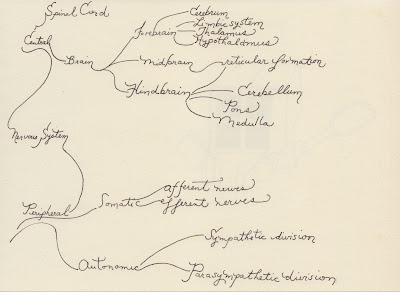 Spinal Cord
Cerebrum
Limbic system
Forebrain
Thalamus
Hypothalamus
Central
Brain
Midbrain
reticular formation
Hindbrain
Cerebellum
Pons
Medulla
Nervous System
Peripheral
Somatic
afferent nerves
efferent nerves
Sympathetic division
Autonomic
Parasympathetic division